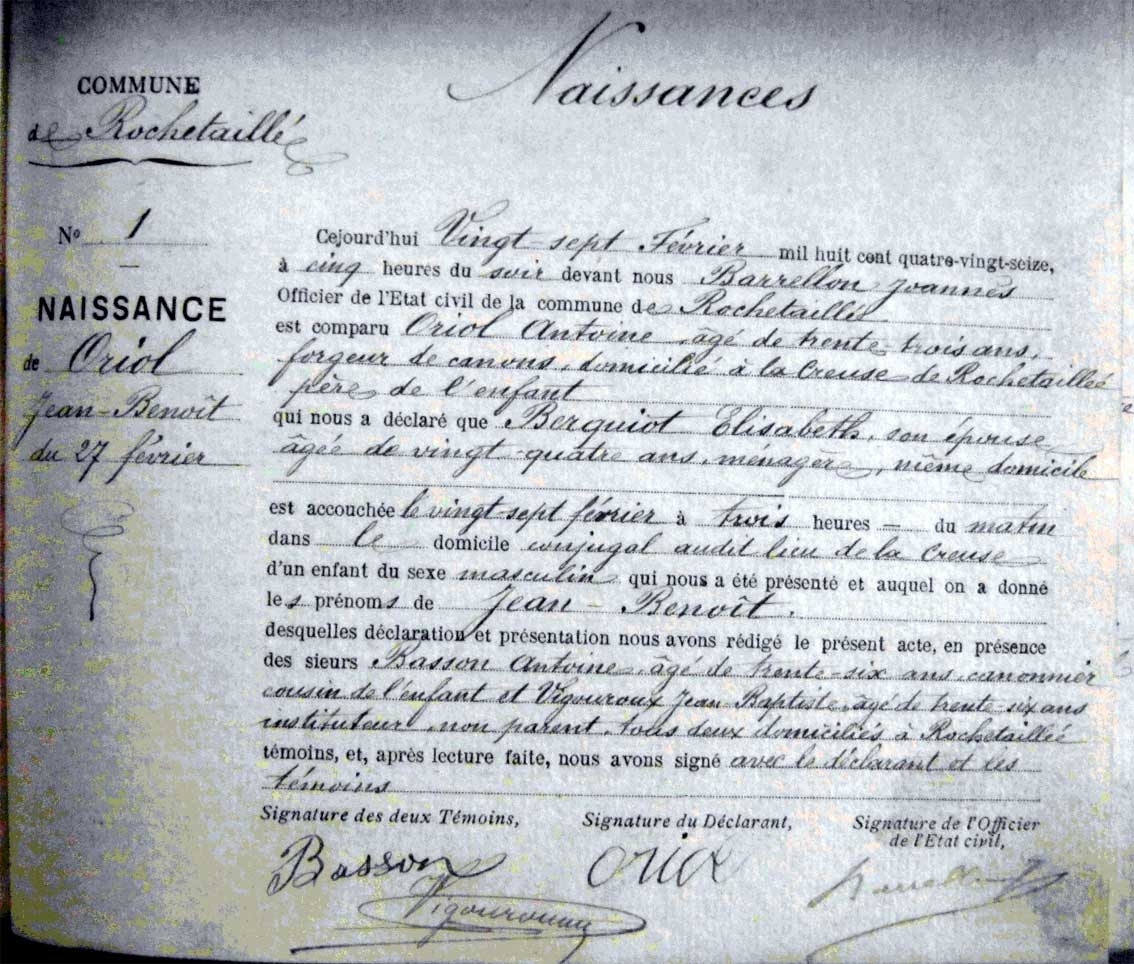 Naissances
COMMUNE
de Rochetaillée
No 1
NAISSANCE
de Oriol
Jean-Benoît
du 27 février
Cejourd'hui Vingt-sept Février mil huit cent quatre-vingt-seize,
à cinq heures du soir devant nous Barrellon Joannès
Officier de l'Etat civil de la commune de Rochetaillée
est comparu Oriol Antoine, âgé de trente-trois ans,
forgeur de canons, domicilié à la Creuse de Rochetaillée
père de l'enfant
qui nous a déclaré que Berguiot Elisabeth, son épouse
âgée de vingt-quatre ans, menagère, même domicile
est accouchée le vingt-sept février à trois heures = du matin
dans le domicile conjugal audit lieu de la Creuse
d'un enfant du sexe masculin qui nous a été présenté et auquel on a donné
les prénoms de Jean-Benoît.
desquelles déclaration et présentation nous avons rédigé le présent acte, en présence
des sieurs Basson Antoine, âgé de trente-six ans, canonnier
cousin de l'enfant et Vigouroux Jean Baptiste, âgé de trente-six ans
instituteur, non parent, tous deux domiciliés à Rochetaillée
témoins, et, après lecture faite, nous avons signé avec le déclarant et les
témoins
Signature des deux Témoins,
Signature du Déclarant,
Signature de l'Officier
de l'Etat civil,
Basson
Oriol
Barrellon
Vigouroux